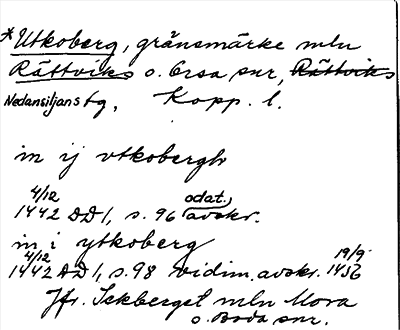 *Utkoberg, gränsmärke mln
Rättviks o. Orsa snr, Rättviks
Nedansiljans fg, Kopp. l.
in ij vtkobergh
4/12 odat.
1442 DD1, s. 96 avskr.
in i ytkoberg
4/12 19/9
1442 DD1, s. 98 vidim. avskr. 1456
Jfr. Ickberget mln Mora
o. Boda snr.